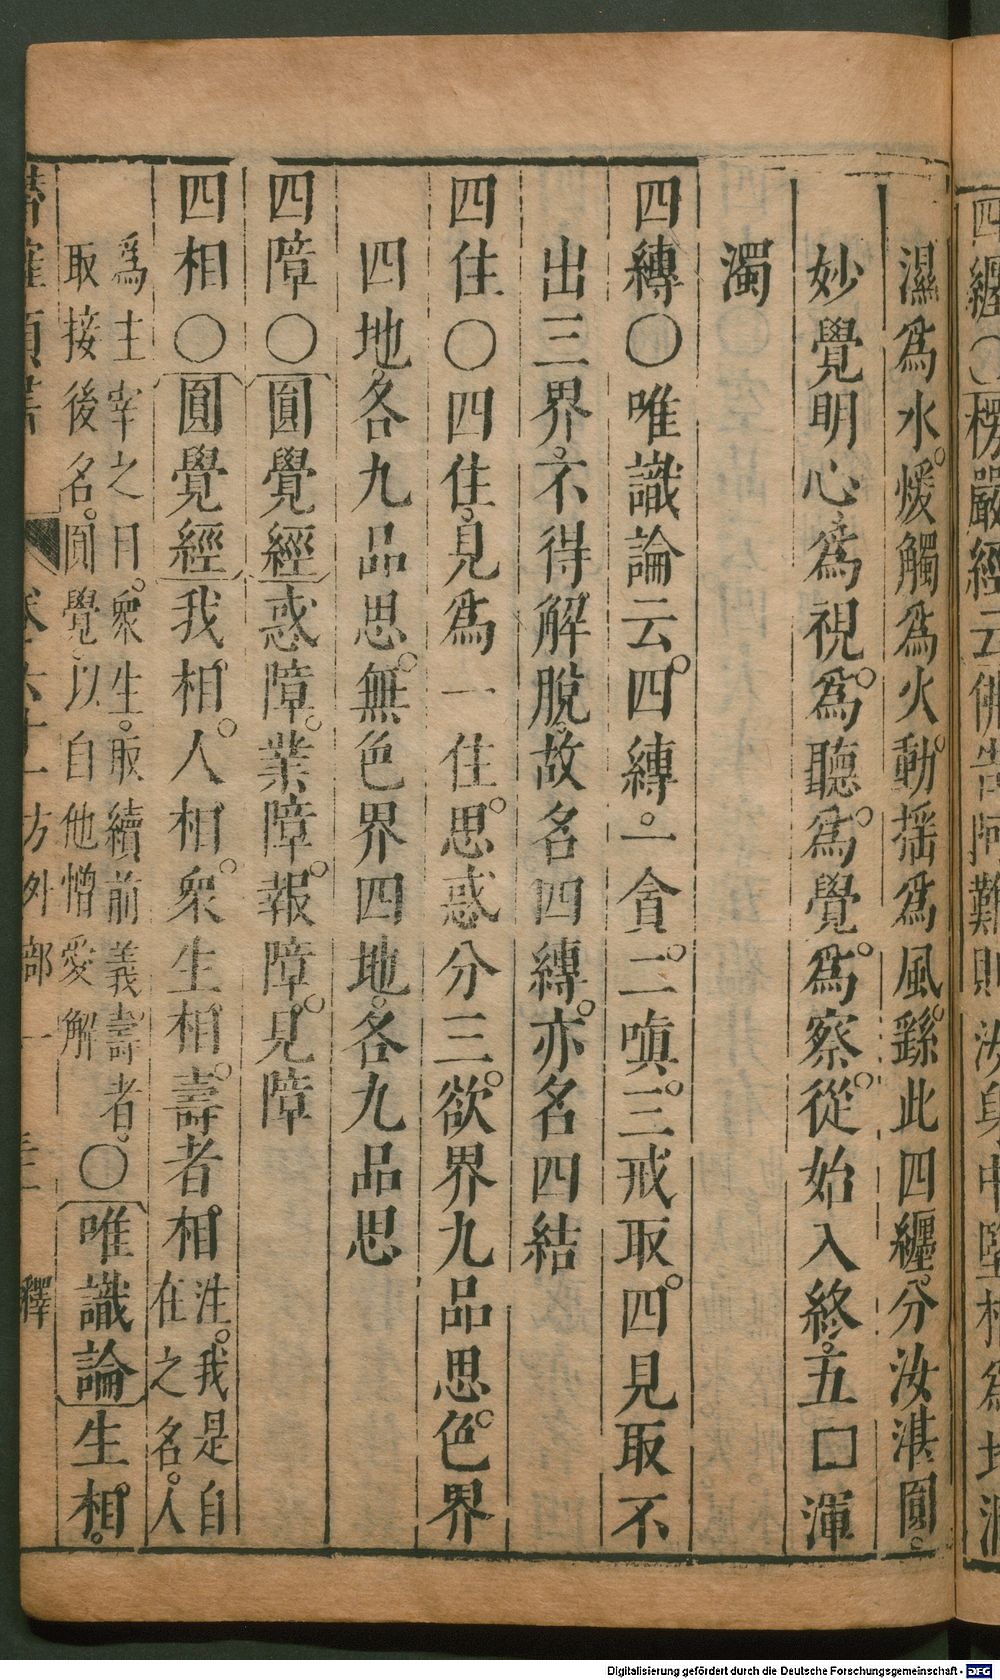 四纏〇楞嚴經云佛告阿難則汝身中堅相為地潤
濕爲水。煖觸爲火。動揺爲風。繇此四纏。分汝湛圓。
妙覺明心。爲視。爲聽。爲覺。爲察。從始入終。五□渾
濁
四縛〇唯識論云。四縛。一貪。二嗔。三戒取。四見取不
出三界。不得解脫。故名四縛。亦名四結
四住〇四住。見爲一住。思惑分三。欲界九品思。色界
四地。各九品思。無色界四地。各九品思
四障〇圓覺經惑障。業障。報障。見障
四相〇圓覺經我相。人相。衆生相。壽者相。注。我是自
在之名。人
爲主宰之目。衆生。取續前義。壽者。
取接後名。圓覺。以自他憎愛解
〇唯識論生相。
卷六十一 方外部一 釋
Digitalisierung gefördert durch die Deutsche Forschungsgemeinschaft - DFG